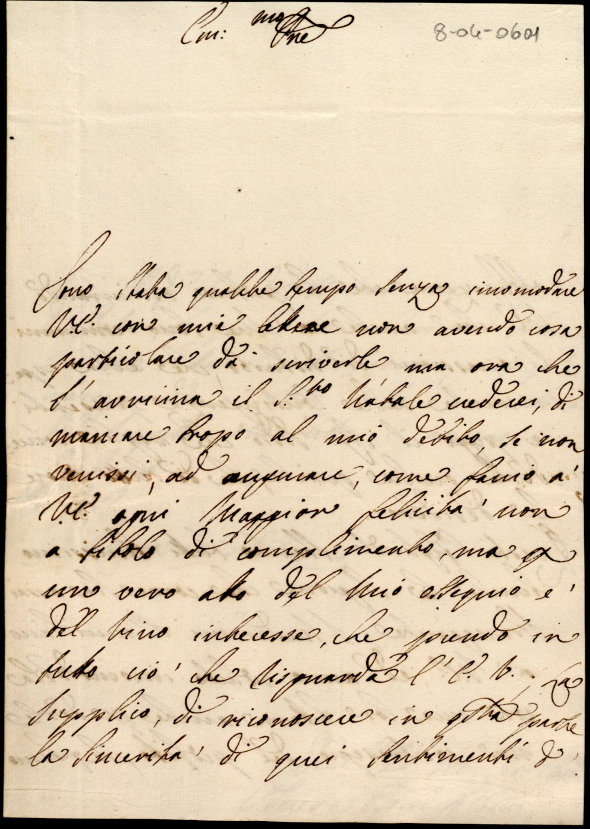 Em: mo Pne
8-04-0601
Sono stata qualche tempo senza incomodare
V.E. con mie letere non avendo cosa
particolare da scriverle ma ora che
s'avvicina il S.to Natale crederei, di
mancare tropo al mio debito, se non
venissi, ad augurare, come facio a'
V.E. ogni Maggior felicita' non
a titolo di complimento, ma
un vero atto del Mio ossequio e'
del vivo interesse, che prendo in
tutto cio' che risguarda l'E.V. La
supplico, di riconoscere in questa parte
la sincerita' di quei sentimenti d